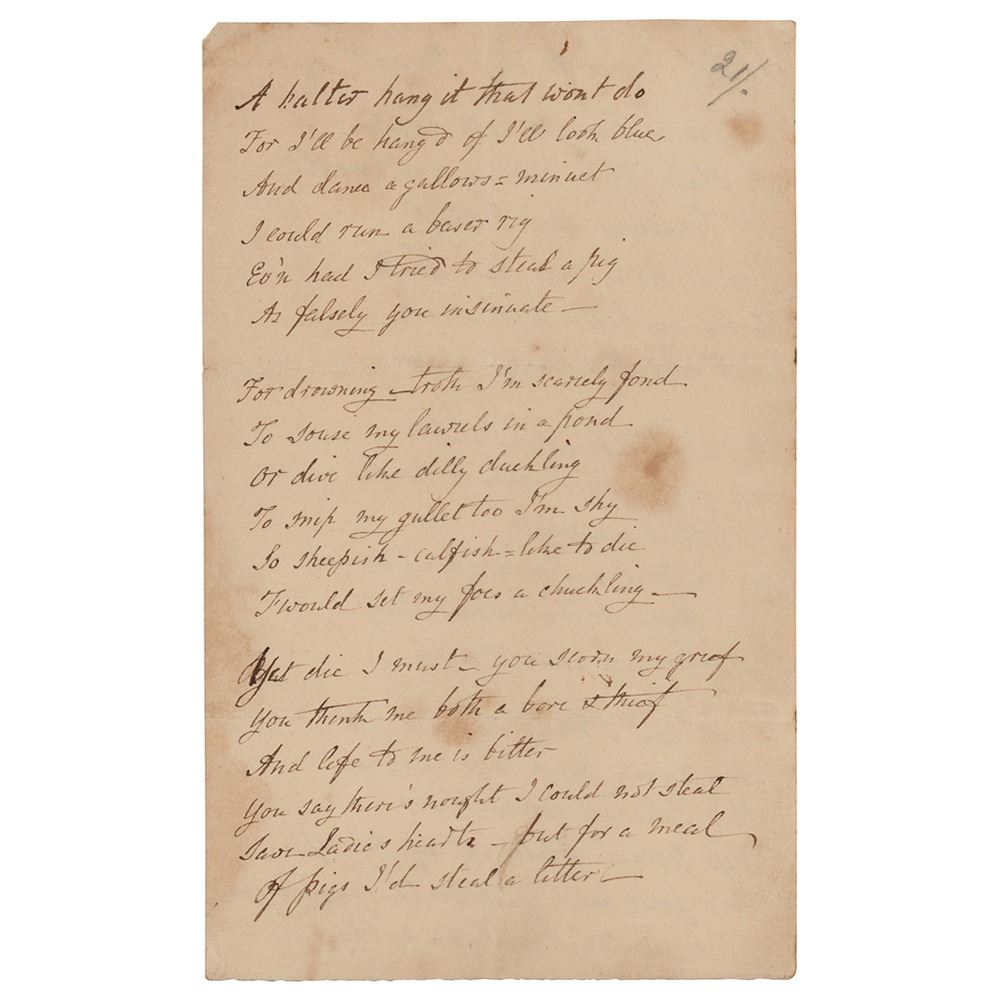 21/.
A halter hang it that wont do
For I'll be hang'd if I'll look blue
And dance a gallows=minuet
I could run a baser rig
Ev'n had I tried to steal a pig
As falsely you insinuate —
For drowning — troth I'm scarcely fond
To souse my lawrels in a pond
Or dive like dilly duckling
To snip my gullet too I'm shy
So sheepish - calfish = like to die
T'would set my foes a chuckling —
Yet die I must — you scorn my grief
You think me both a bore & thief
And life to me is bitter
You say there's nought I could not steal
Save Ladies hearts — but for a meal
Of pigs I'd steal a litter —